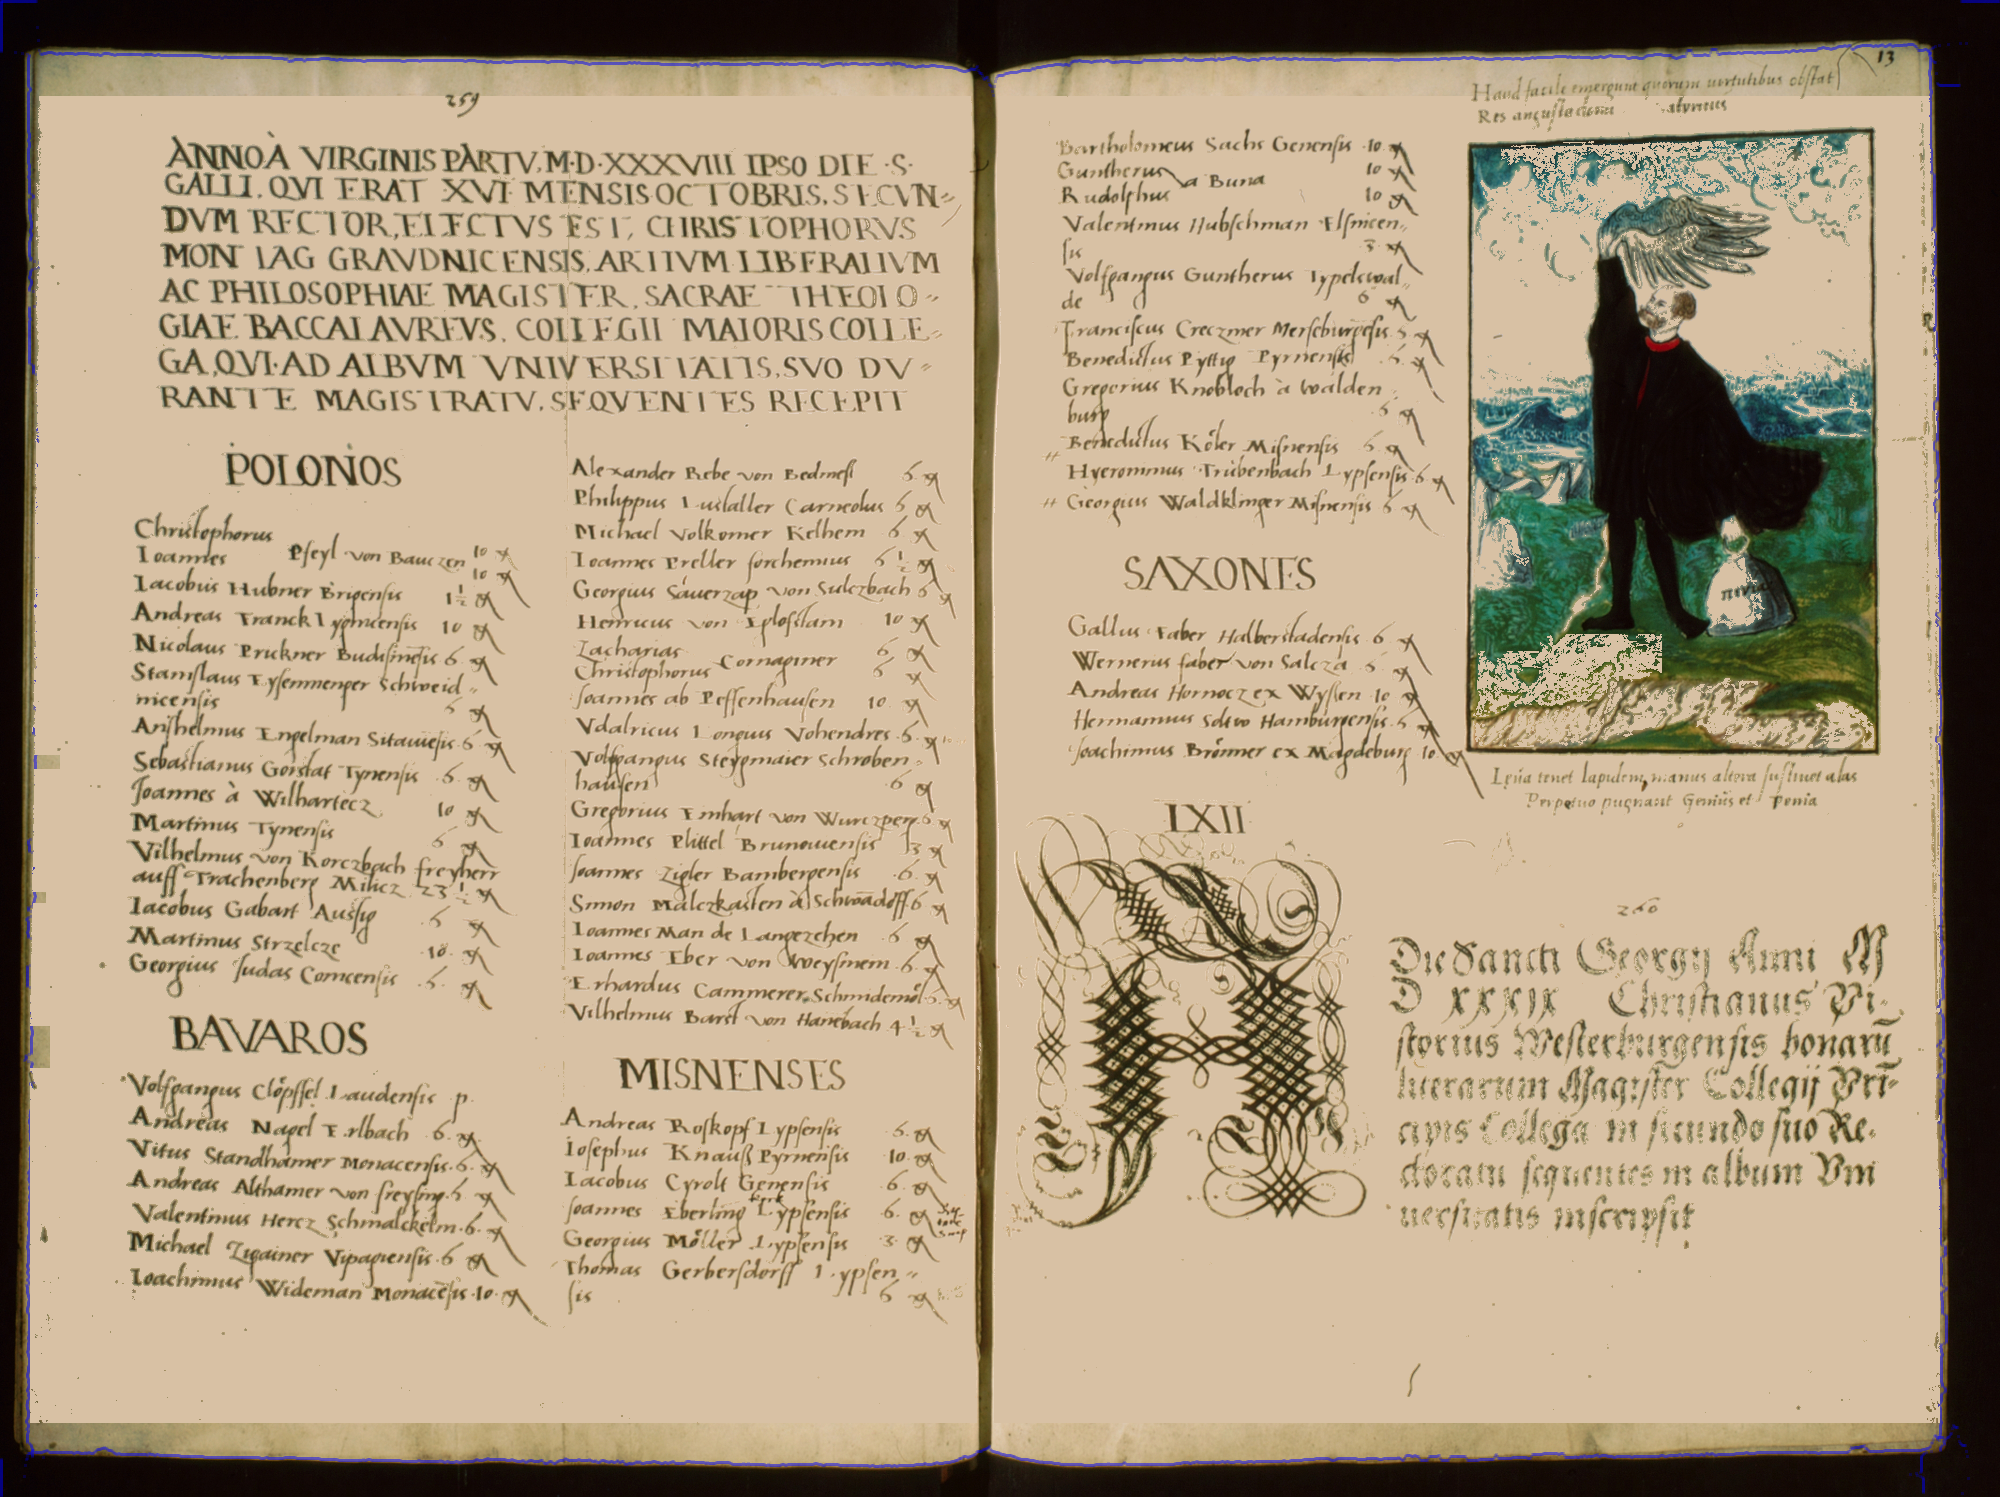 259
ANNO À VIRGINIS PARTV, M·D·XXXVIII IPSO DIE ·S·
GALLI, QVI ERAT XVI MENSIS OCTOBRIS, SECVN=
DVM RECTOR, ELECTVS EST, CHRISTOPHORVS
MONTAG GRAVDNICENSIS, ARTIVM LIBERALIVM
AC PHILOSOPHIAE MAGISTER, SACRAE THEOLO=
GIAE BACCALAVREVS, COLLEGII MAIORIS COLLE=
GA, QVI AD ALBVM VNIVERSITATIS, SVO DV=
RANTE MAGISTRATV, SEQVENTES RECEPIT
POLONOS
Christophorus
Ioannes Pseyl von Bauczen 10
10
Iacobus Hubner Brigensis 1½
Andreas Franck Lygnicensis 10
Nicolaus Pruckner Budisinēsis 6
Stanislaus Eysenmenger Schweid=
nicensis 6
Anshelmus Engelman Sitaviēsis 6
Sebastianus Gorstat Tynensis 6
Joannes à Wilhartecz 10
Martinus Tynensis 6
Vilhelmus von Korczbach freyherr
auff Trachenberg Milicz 23½
Iacobus Gabart Aussig 6
Martinus Strzelcze 10
Georgius Judas Comcensis 6
BAVAROS
Volfgangus Clöpffel Laudensis p.
Andreas Nagel Erlbach 6
Vitus Standhamer Monacensis 6
Andreas Althamer von freysing 6
Valentinus Hercz Schmalckeln 6
Michael Zigainer Vipagiensis 6
Ioachimus Wideman Monacēsis 10
Alexander Rebe von Bedmesl 6
Philippus Lustaller Carneolus 6
Michael Volkomer Kelhem 6
Ioannes Preller forchemius 6½
Georgius Sauerzap von Sulczbach 6
Henricus von Eglofstam 10
Zacharias 6
Christophorus Comaginer 6
Joannes ab Peffenhausen 10
Vdalricus Longus Vohendres 6
Volfgangus Stegmaier Schroben=
hausen 6
Gregorius Einhart von Wurczperg 6
Ioannes Plittel Brunouensis 3
Joannes Zigler Bambergensis 6
Simon Malczkasten à Schwādorff 6
Ioannes Man de Langezehen 6
Ioannes Eber von Weysmem 6
Erhardus Cammerer Schmidemöl 6
Vilhelmus Barst von Hanebach 4½
MISNENSES
Andreas Roskopf Lypsensis 6
Iosephus Knauß Pyrnensis 10
Iacobus Cyrolt Genensis 6
Joannes Eberling Lypsensis 6
Georgius Möller Lypsensis 3
Thomas Gerbersdorff Lypsen=
sis 6
13
Haud facile emergunt quorum virtutibus obstat
Res angusta domi
Bartholomeus Sachs Genensis 10
Guntherus 10
Rudolphus à Buna 10
Valentinus Hubschman Elsnicen=
sis 3
Volfgangus Guntherus Typelswal=
de 6
Franciscus Creczmer Merseburgēsis 6
Benedictus Pyttig Pyrnensis 6
Gregorius Knobloch à Walden
burg 6
Benedictus Köler Misnensis 6
Hyeronimus Trübenbach Lypsensis 6
Georgius Waldklinger Misnensis 6
SAXONES
Gallus Faber Halberstadensis 6
Wernerus faber von Salcza 6
Andreas Hornocz ex Wyssen 10
Hermannus Soltvo Hamburgensis 6
Joachimus Brönner ex Magdeburg 10
Leua tenet lapidem, manus altera sustinet alas
Perpetuo pugnant Genius et Penia
LXII
260
Die Sancti Georgij Anni M
D XXXIX Christianus Pi-
storius Westerburgensis bonarū
literarum Magister Collegij Pri-
cipis Collega in secundo suo Re-
ctoratu sequentes in album Vni
uersitatis inscripsit